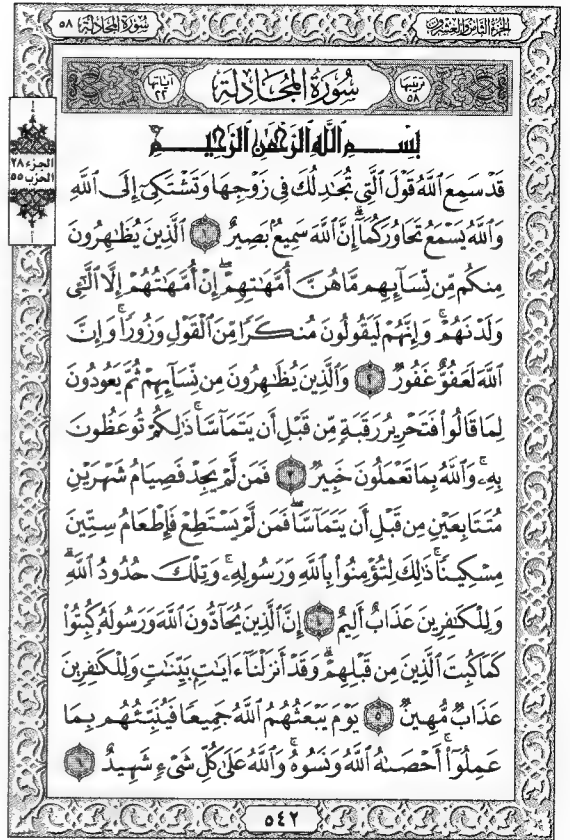 الجزء الثامن والعشرون
سورة المجادلة ٥٨
ترتيبها ٥٨
سُورَةُ المُجَادلة
آياتها ٢٢
الجزء ٢٨
الحزب ٥٥
بِسْمِ ٱللَّهِ ٱلرَّحْمَٰنِ ٱلرَّحِيمِ
قَدْ سَمِعَ ٱللَّهُ قَوْلَ ٱلَّتِي تُجَٰدِلُكَ فِي زَوْجِهَا وَتَشْتَكِيٓ إِلَى ٱللَّهِ
وَٱللَّهُ يَسْمَعُ تَحَاوُرَكُمَآۚ إِنَّ ٱللَّهَ سَمِيعٌۢ بَصِيرٌ ١ ٱلَّذِينَ يُظَٰهِرُونَ
مِنكُم مِّن نِّسَآئِهِم مَّا هُنَّ أُمَّهَٰتِهِمْۖ إِنْ أُمَّهَٰتُهُمْ إِلَّا ٱلَّٰٓـِٔي
وَلَدْنَهُمْۚ وَإِنَّهُمْ لَيَقُولُونَ مُنكَرًا مِّنَ ٱلْقَوْلِ وَزُورًاۚ وَإِنَّ
ٱللَّهَ لَعَفُوٌّ غَفُورٌ ٢ وَٱلَّذِينَ يُظَٰهِرُونَ مِن نِّسَآئِهِمْ ثُمَّ يَعُودُونَ
لِمَا قَالُوا۟ فَتَحْرِيرُ رَقَبَةٍ مِّن قَبْلِ أَن يَتَمَآسَّاۚ ذَٰلِكُمْ تُوعَظُونَ
بِهِۦۚ وَٱللَّهُ بِمَا تَعْمَلُونَ خَبِيرٌ ٣ فَمَن لَّمْ يَجِدْ فَصِيَامُ شَهْرَيْنِ
مُتَتَابِعَيْنِ مِن قَبْلِ أَن يَتَمَآسَّاۖ فَمَن لَّمْ يَسْتَطِعْ فَإِطْعَامُ سِتِّينَ
مِسْكِينًاۚ ذَٰلِكَ لِتُؤْمِنُوا۟ بِٱللَّهِ وَرَسُولِهِۦۚ وَتِلْكَ حُدُودُ ٱللَّهِۗ
وَلِلْكَٰفِرِينَ عَذَابٌ أَلِيمٌ ٤ إِنَّ ٱلَّذِينَ يُحَآدُّونَ ٱللَّهَ وَرَسُولَهُۥ كُبِتُوا۟
كَمَا كُبِتَ ٱلَّذِينَ مِن قَبْلِهِمْۚ وَقَدْ أَنزَلْنَآ ءَايَٰتٍۭ بَيِّنَٰتٍۚ وَلِلْكَٰفِرِينَ
عَذَابٌ مُّهِينٌ ٥ يَوْمَ يَبْعَثُهُمُ ٱللَّهُ جَمِيعًا فَيُنَبِّئُهُم بِمَا
عَمِلُوٓا۟ۚ أَحْصَىٰهُ ٱللَّهُ وَنَسُوهُۚ وَٱللَّهُ عَلَىٰ كُلِّ شَيْءٍ شَهِيدٌ ٦
٥٤٢